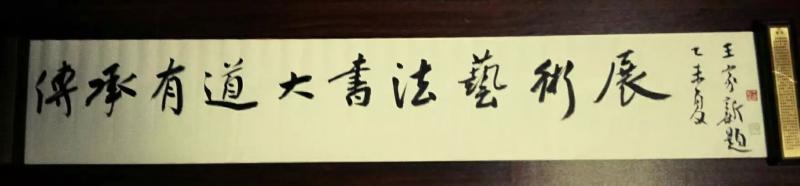 傳承有道大書法藝術展
乙未夏
王家新題